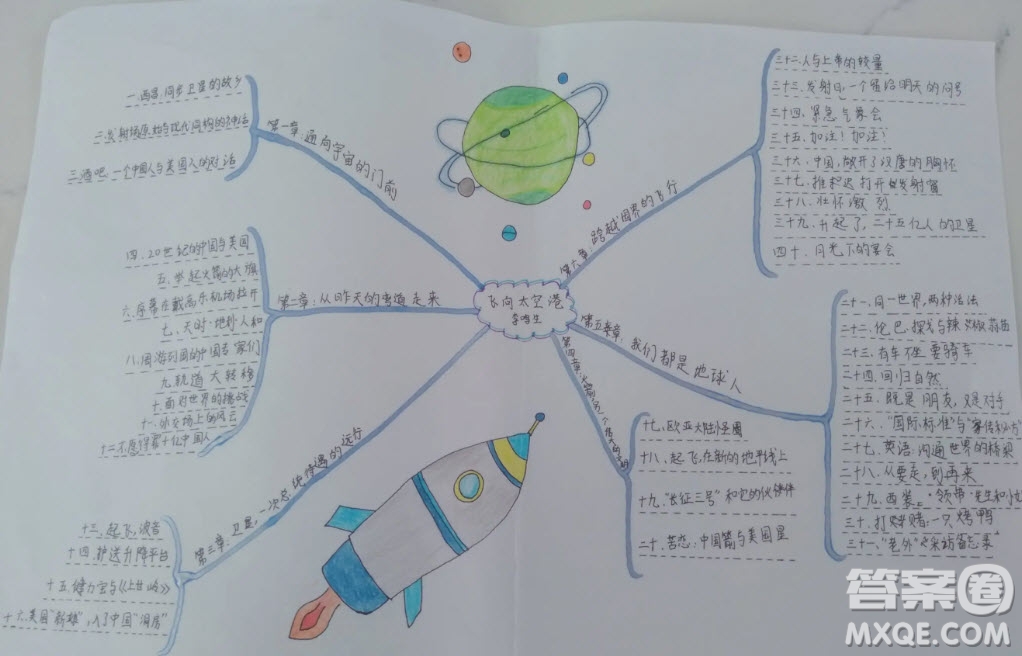 飞向太空港
李鸣生
第一章：通向宇宙的门前
一.西昌:同步卫星的故乡
二.发射场:原始与现代同构的神话
三.酒吧.一个中国人与美国人的对话
第二章：从昨天的弯道走来
四.20世纪的中国与美国
五.举起火箭的大旗
六.序幕在戴高乐机场拉开
七、天时·地利·人和
八.周游列国的中国专家们
九.轨道大转移
十.面对世界的挑战
十一.外交场上的风云
十二.不愿得罪十亿中国人
第三章：卫星，一次总统待遇的远行
十三.起飞,波音
十四.护送升降平台
十五.健力宝与《上甘岭》
十六.美国"新娘",入了中国"洞房"
第四章：
十七、欧亚大陆怪圈
十八、起飞,在新的地平线上
十九、"长征三号"和它的伙伴
二十.苦恋：中国箭与美国星
第五章：我们都是地球人
二十二、伦巴.探戈与辣椒蒜苗
二十三：有车不坐要骑车
二十四：回归自然
二十五：既是朋友,又是对手
二十六、"国际标准"与
二十七、英语：沟通世界的桥梁
二十八、从要走,到再来
二十九、西装、领带·先生和小
三十、打赌：一只烤鸭
三十一、"老外"采访备忘录
第六章：跨越国界的飞行
三十二.人与上帝的较量
三十三.发射日:一个留给明天的问号
三十四.紧急气象会
三十五、加注！加注！
三十六、中国,敞开了汉唐的胸怀
三十七、推迟打开发射窗
三十八、壮怀激烈
三十九、升起了,二十五亿人的卫星
四十、月光下的宴会
答案圈
MXQE.COM